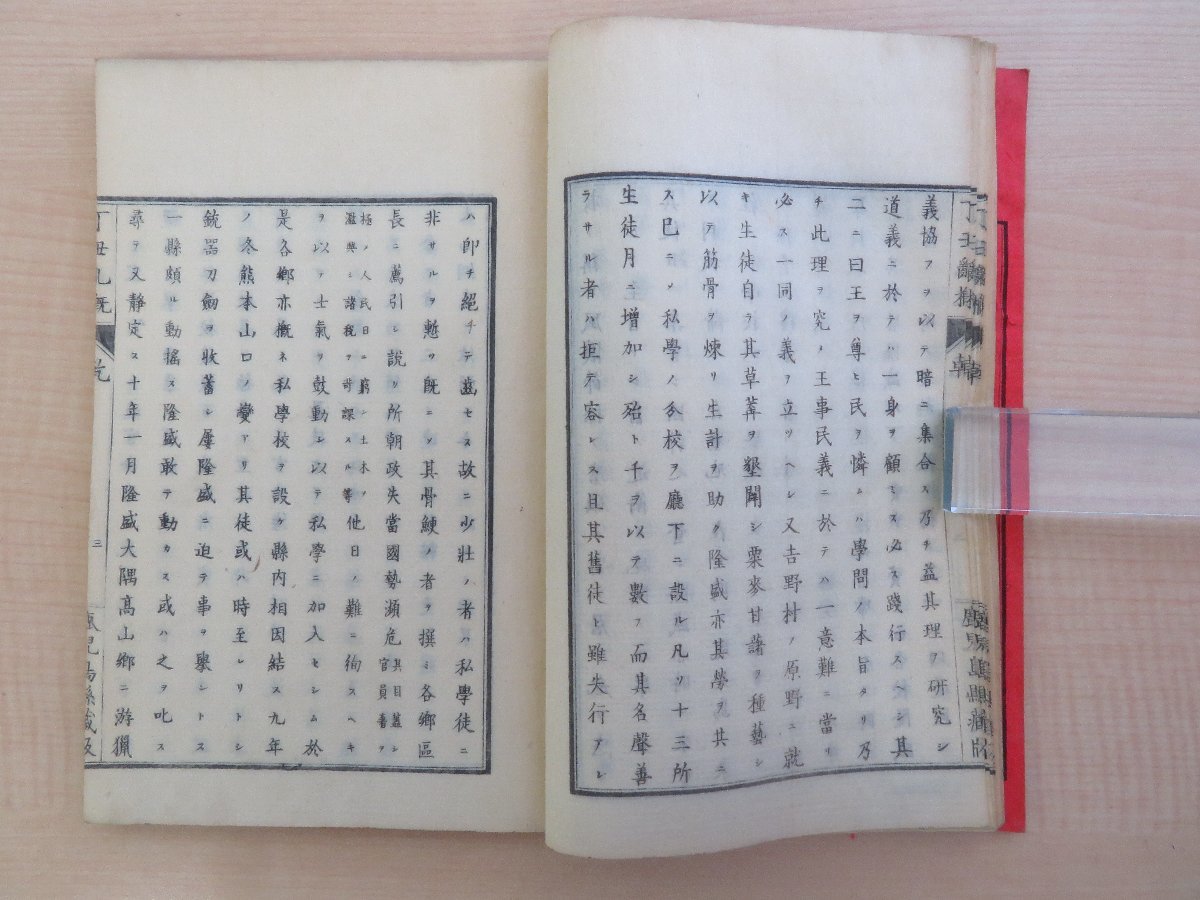 義協フヲ以テ暗ニ集合ス乃チ益其理ヲ研究シ
道義ニ於テハ一身ヲ顧ミス必ス踐行スヘシ其
二ニ曰王ヲ尊ヒ民ヲ憐ムハ學問ノ本旨タリ乃
チ此理ヲ究メ王事民義ニ於テハ一意難ニ當リ
必ス一同ノ義ヲ立ツヘシ又吉野村ノ原野ニ就
キ生徒自ラ其草萊ヲ墾闢シ粟麥甘藷ヲ種藝シ
以テ筋骨ヲ煉リ生計ヲ助ク隆盛亦其勞ヲ共ニ
ス已ニシテ私學ノ分校ヲ廳下ニ設ル凡ソ十三所
生徒月ニ增加シ殆ト千ヲ以テ數フ而其名聲善
ラサル者ハ拒テ容レス且其舊徒ト雖失行アレ
ハ即チ絕チテ齒セス故ニ少壯ノ者ハ私學徒ニ
非サルヲ慙ツ既ニシテ其骨鯁ノ者ヲ撰ミ各鄉區
長ニ薦引シ說ク所朝政失當國勢瀕危其目蓋シ官員奢ヲ
極メ人民日ニ窮シ土木ノ濫興ミ諸稅ヲ苛課スル等他日ノ難ニ徇スヘキ
ヲ以テ士氣ヲ鼓動シ以テ私學ニ加入セシム於
是各鄉亦概ネ私學校ヲ設ケ縣內相因結ス九年
ノ冬熊本山口ノ變アリ其徒或ハ時至レリトシ
銃器刀劍ヲ收蓄シ屢隆盛ニ迫テ事ヲ擧ントス
一縣頗ル動搖ス隆盛敢テ動カス或ハ之ヲ叱ス
尋テ又靜定ス十年一月隆盛大隅高山鄉ニ游獵
丁丑亂概
三